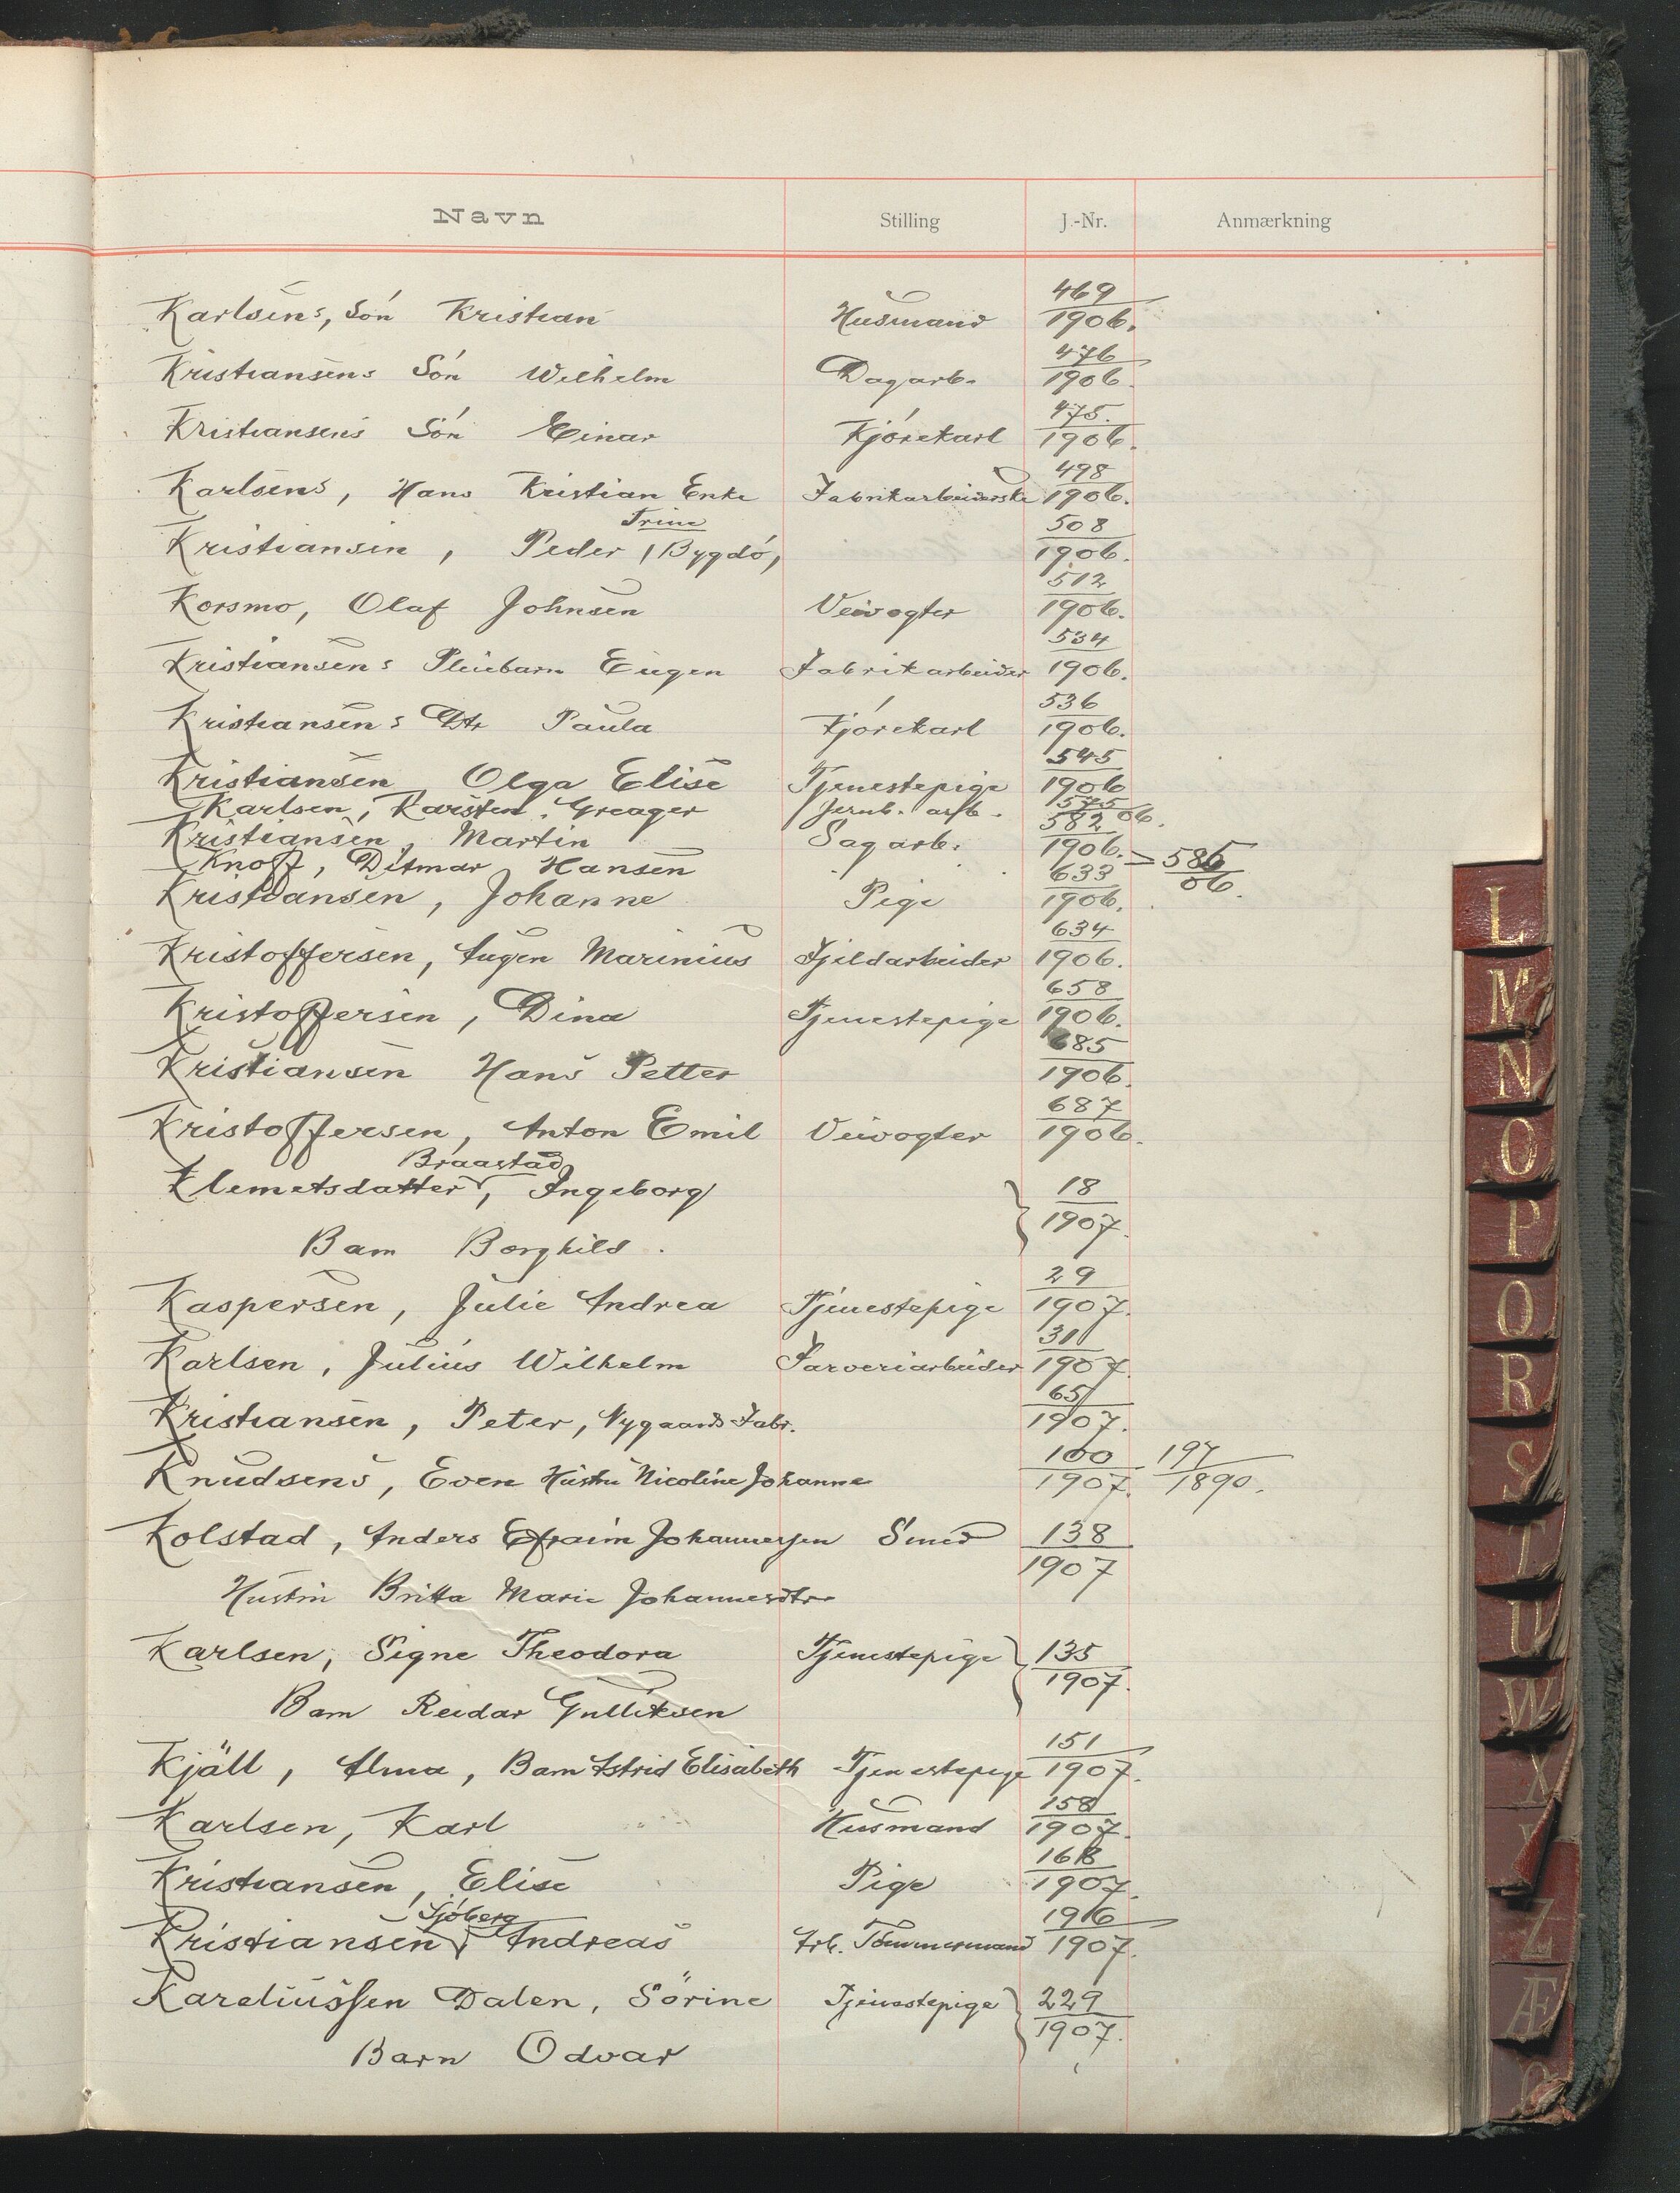 Navn Stilling J.-Nr. Anmærkning
Karlsens, Sön Kristian Husmand 469/1906.
Kristiansens Sön Wilhelm Dagarb. 476/1906.
Kristiansens Sön Einar Kjörekarl 475./1906.
Karlsens, Hans Kristian Enke Fabrikarbeiderske 498/1906.
Trine
Kristiansen, Peder (Bygdö) 508/1906.
Korsmo, Olaf Johnsen Veivogter 512/1906.
Kristiansens Pleiebarn Eugen Fabrikarbeider 534/1906.
Kristiansens Dtr Paula Kjörekarl 536/1906.
Kristiansen Olga Elise Tjenestepige 545/1906
Karlsen, Karsten Greager Jernb. arb. 575/06.
Kristiansen, Martin Sagarb. 582/1906.
Knoff, Ditmar Hansen = 586/06.
Kristiansen, Johanne Pige 633/1906.
Kristoffersen, Augen Marinius Fjeldarbeider 634/1906.
Kristoffersen, Dina Tjenestepige 658/1906.
Kristiansen Hans Petter 685/1906.
Kristoffersen, Anton Emil Veivogter 687/1906.
Braastad
Klemetsdatter, Ingeborg 18/1907.
Barn Borghild.
Kaspersen, Julie Andrea Tjenestepige 29/1907.
Karlsen, Julius Wilhelm Farveriarbeider 31/1907.
Kristiansen, Peter, Nygaards Fabr. 65/1907.
Knudsens, Even Hustru Nicoline Johanne 100/1907. 197/1890.
Kolstad, Anders Efraim Johannessen Smed 138/1907
Hustru Britta Marie Johannesdtr
Karlsen, Signe Theodora Tjenestepige 135/1907.
Barn Reidar Gulliksen
Kjäll, Alma, Barn Astrid Elisabeth Tjenestepige 151/1907.
Karlsen, Karl Husmand 158/1907.
Kristiansen, Elise Pige 168/1907.
Sjöberg
Kristiansen, Andreas Arb. Tömmermand 196/1907.
Kareliussen Dalen, Sörine Tjenestepige 229/1907.
Barn Odvar
L
M
N
O
P
Q
R
S
T
U
W
X
Y
Z
Æ
Ø